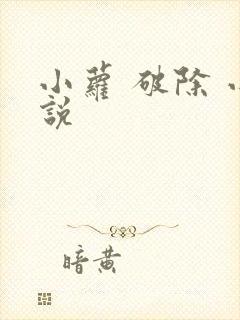 小蘿 破除
說
暗黄